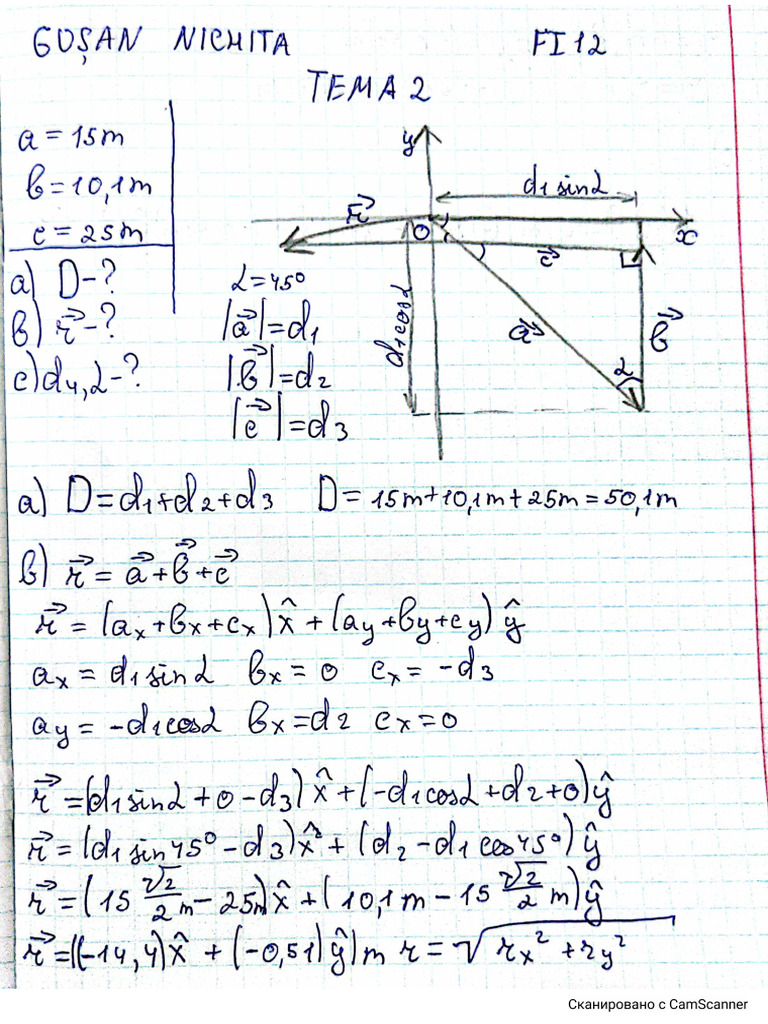 GUȘAN NICHITA FI12
TEMA 2
a = 15m
b = 10,1m
c = 25m
a) D-?
b) r⃗-?
c) d4, α-?
α=45°
|a⃗|=d1
|b⃗|=d2
|c⃗|=d3
y
d1 sinα
r⃗
O
x
c⃗
d1cosα
a⃗
b⃗
α
a) D=d1+d2+d3 D= 15m+10,1m+25m=50,1m
b) r⃗ = a⃗+b⃗+c⃗
r⃗ = (ax+bx+cx)x̂+(ay+by+cy)ŷ
ax = d1sinα bx = 0 cx = -d3
ay = -d1cosα bx=d2 cx=0
r⃗ =(d1sinα+0-d3)x̂+(-d1cosα+d2+0)ŷ
r⃗ = (d1sin45°-d3)x̂+(d2-d1cos45°)ŷ
r⃗ =(15 √2/2 m-25m)x̂+(10,1m-15 √2/2 m)ŷ
r⃗=((-14,4)x̂+(-0,51)ŷ)m r=√rx²+ry²
Сканировано с CamScanner